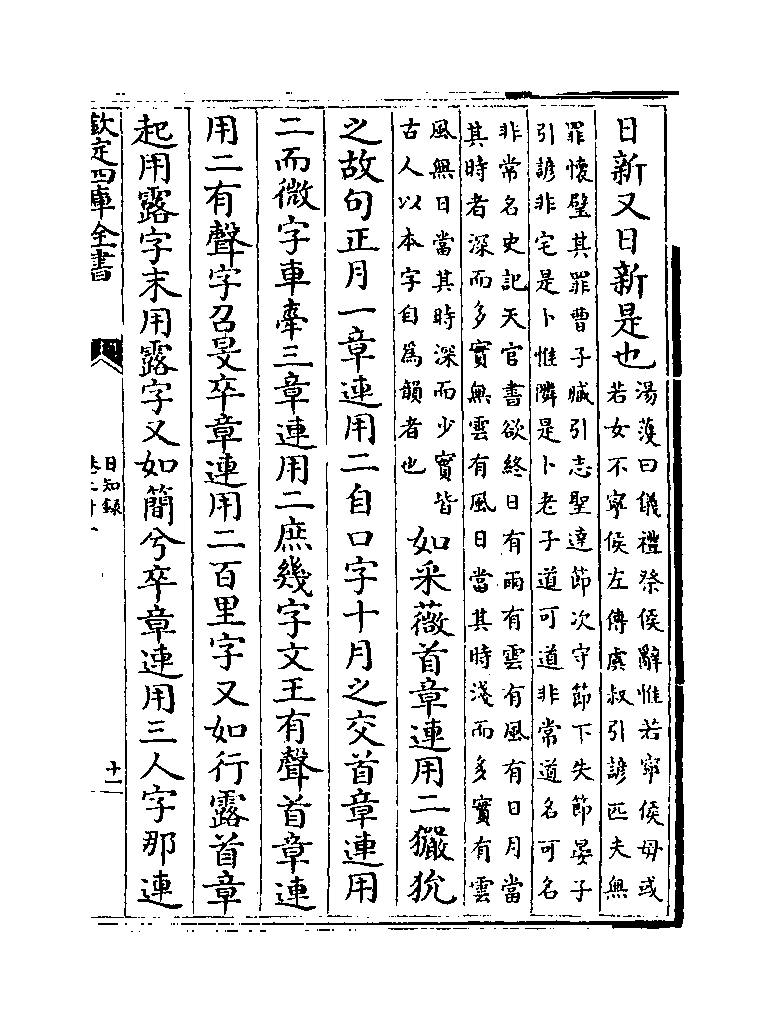 日新又日新是也湯濩曰儀禮祭侯辭惟若寜侯毋或
若女不寧侯左傳虞叔引諺匹夫無
罪懷璧其罪曹子臧引志聖達節次守節下失節晏子
引諺非宅是卜惟隣是卜老子道可道非常道名可名
非常名史記天官書欲終日有雨有雲有風有日日當
其時者深而多實無雲有風日當其時淺而多實有雲
風無日當其時深而少實皆
古人以本字自為韻者也如采薇首章連用二玁狁
之故句正月一章連用二自口字十月之交首章連用
二而微字車舝三章連用二庶幾字文王有聲首章連
用二有聲字召旻卒章連用二百里字又如行露首章
起用露字末用露字又如簡兮卒章連用三人字那連
欽定四庫全書
日知録
十一